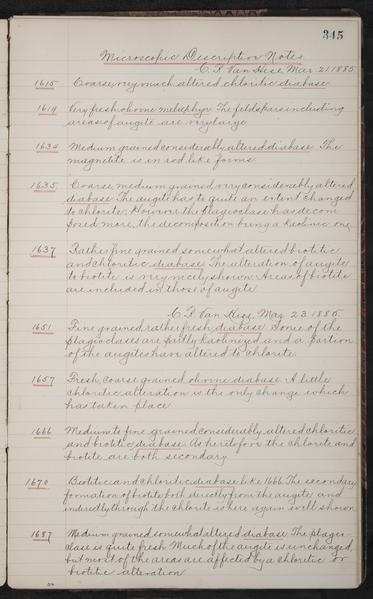 345
Microscopic Description Notes
C. R. Van Hise, Mar. 21, 1885.
1615 Coarse, very much altered chloritic diabase.
1619 Very fresh olivine melaphyr. The feldspars including
areas of augite are very large.
1634 Medium grained considerably altered diabase. The
magnetite is in rod like forms.
1635 Coarse, medium grained, very considerably altered
diabase. The augite has to quite an extent changed
to chlorite. However the plagioclase has decom
posed more, the decomposition being a kaolinic one.
1637 Rather fine grained somewhat altered biotitic
and chloritic diabase. The alteration of augite
to biotite is very nicely shown. Areas of biotite
are included in those of augite.
C. R. Van Hise, Mar. 23, 1885.
1651 Fine grained rather fresh diabase. Some of the
plagioclases are partly kaolinized and a portion
of the augites have altered to chlorite.
1657 Fresh, coarse grained, olivine diabase. A little
chloritic alteration is the only change which
has taken place.
1666 Medium to fine grained considerably altered chloritic
and biotitic diabase. As heretofore the chlorite and
biotite are both secondary.
1670 Biotitic and chloritic diabase like 1666. The secondary
formation of biotite both directly from the augite and
indirectly through the chlorite is here again well shown.
1687 Medium grained somewhat altered diabase. The plagio
clase is quite fresh. Much of the augite is unchanged,
but most of the areas are affected by a chloritic or
biotitic alteration.